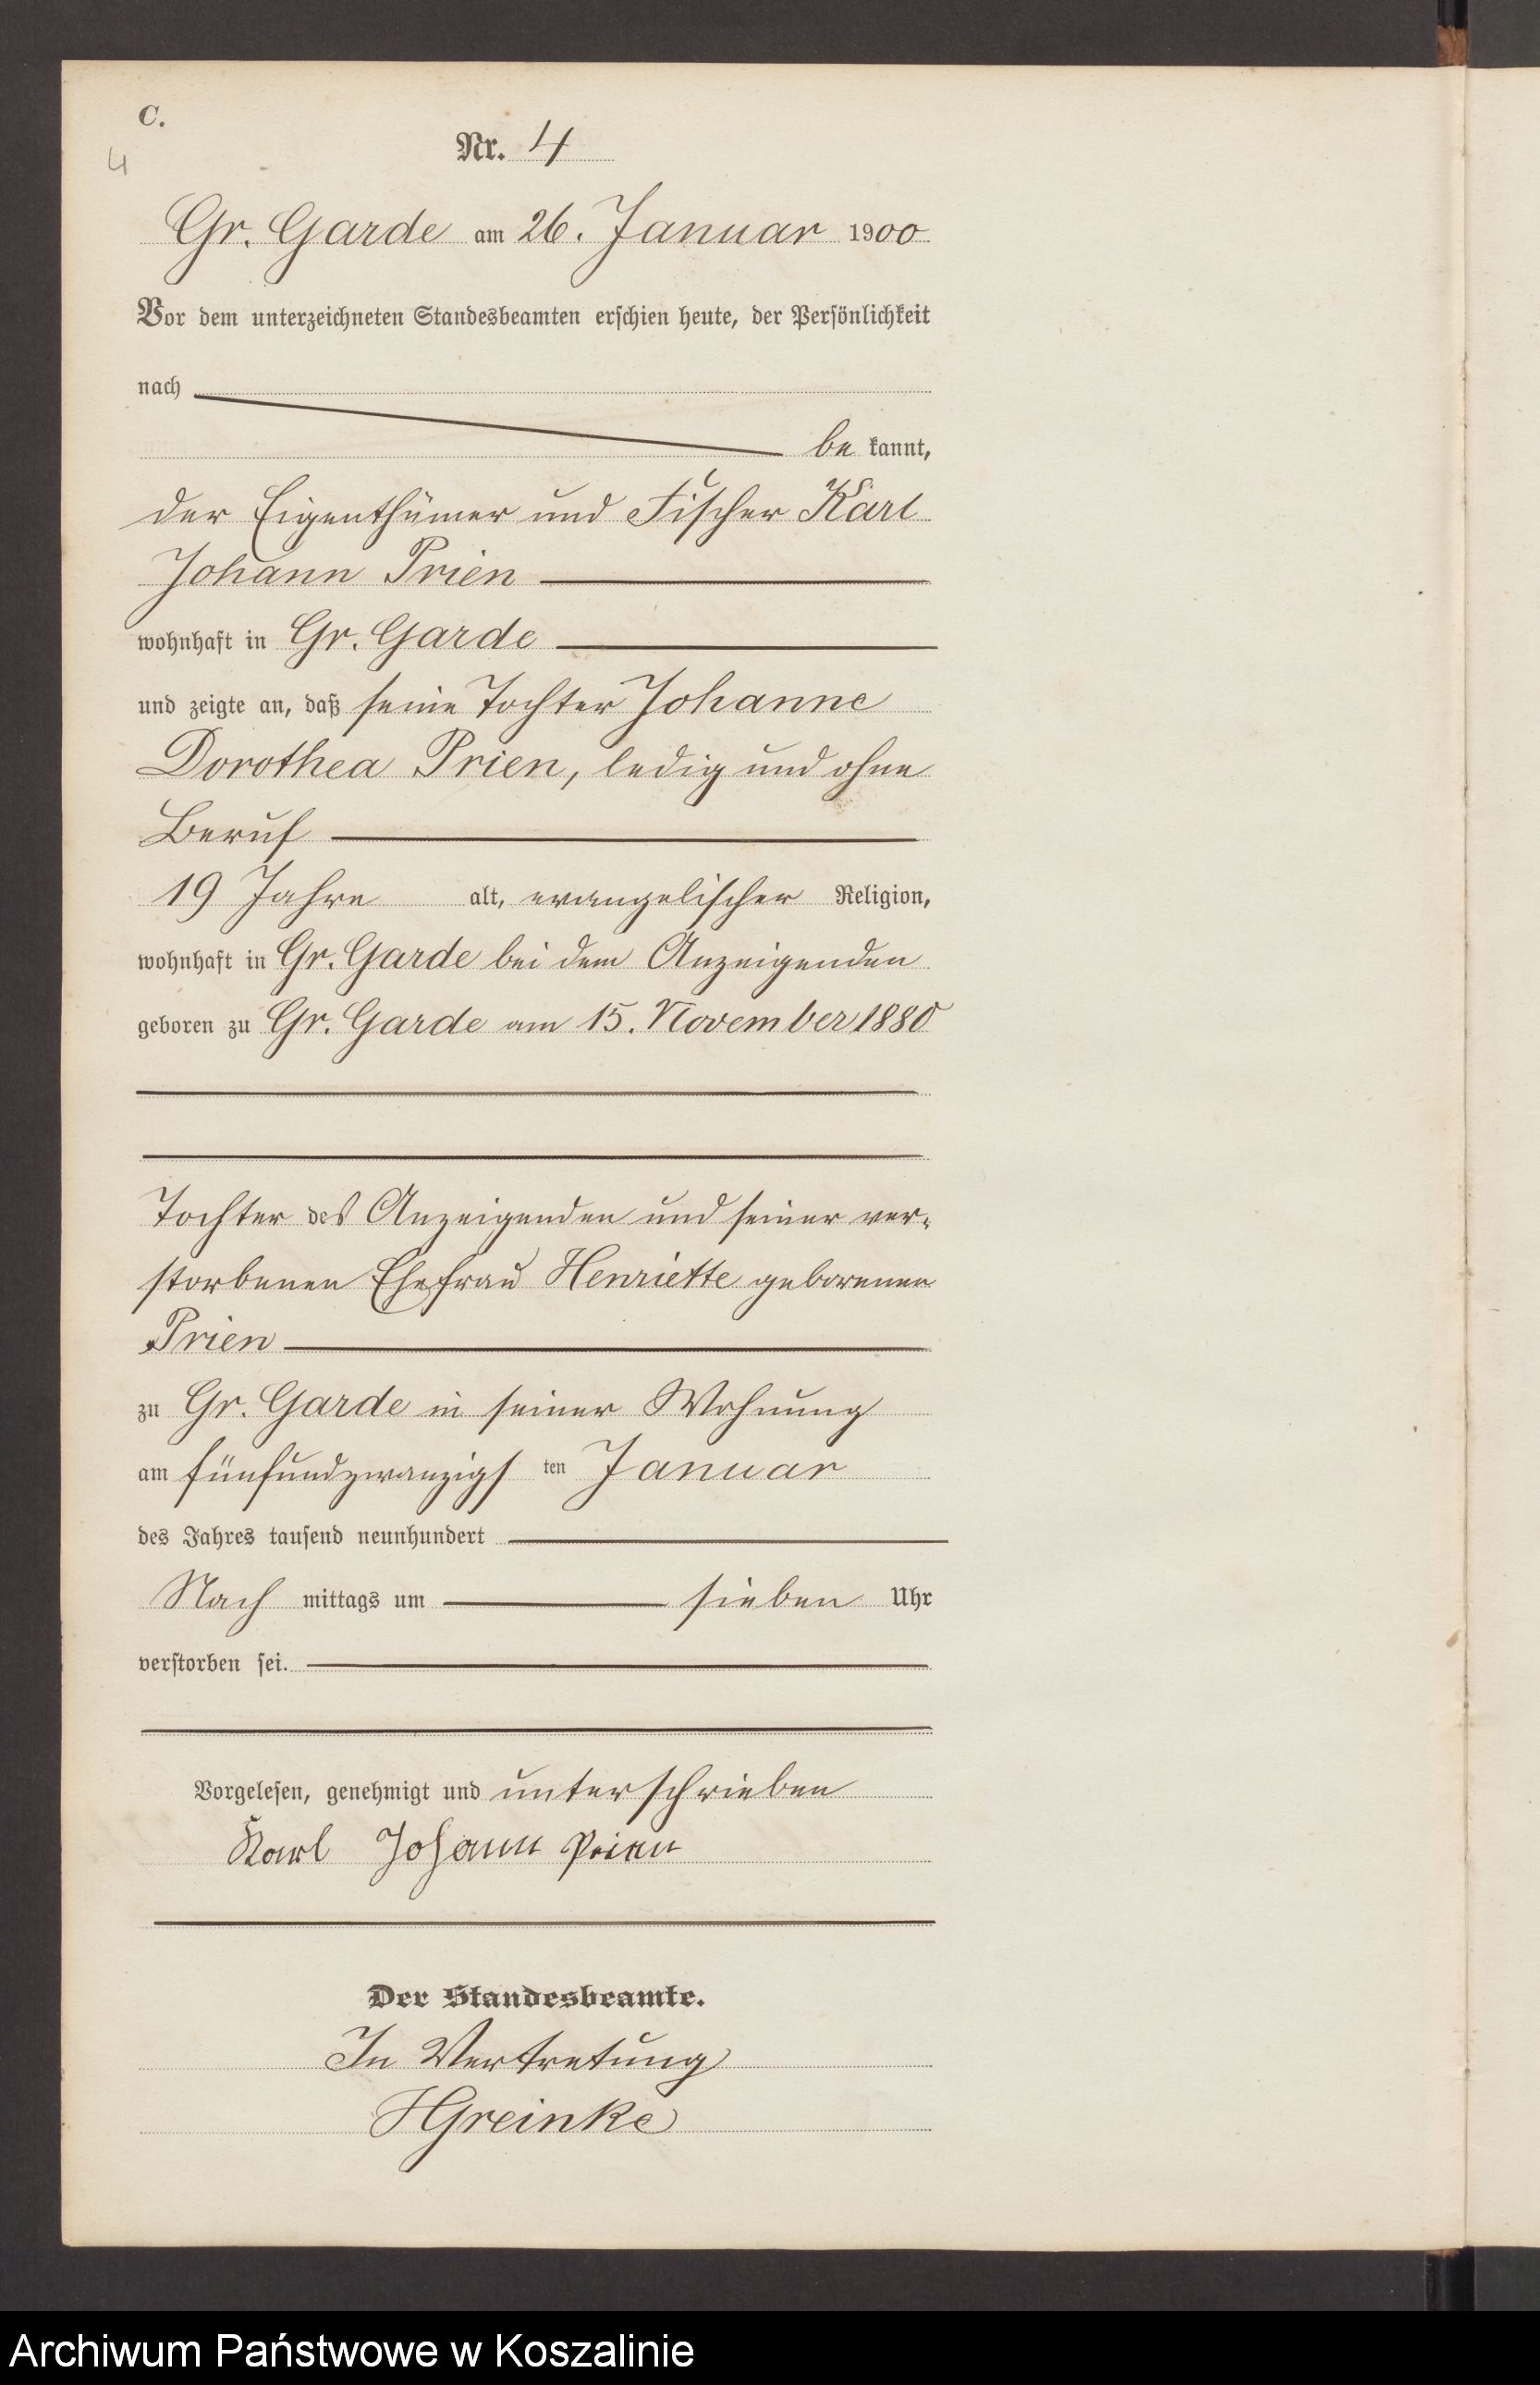 C.
4
Nr. 4
Gr. Garde am 26. Januar 1900
Vor dem unterzeichneten Standesbeamten erschien heute, der Persönlichkeit
nach
be kannt,
der Eigenthümer und Fischer Karl
Johann Prien
wohnhaft in Gr. Garde
und zeigte an, daß seine Tochter Johanne
Dorothea Prien, ledig und ohne
Beruf
19 Jahre alt, evangelischer Religion,
wohnhaft in Gr. Garde bei dem Anzeigenden
geboren zu Gr. Garde am 15. November 1880
Tochter des Anzeigenden und seiner ver-
storbenen Ehefrau Henriette geborenen
Prien
zu Gr. Garde in seiner Wohnung
am fünfundzwanzigs ten Januar
des Jahres tausend neunhundert
Nach mittags um sieben Uhr
verstorben sei.
Vorgelesen, genehmigt und unterschrieben
Karl Johann Prien
Der Standesbeamte.
In Vertretung
HGreinke
Archiwum Państwowe w Koszalinie